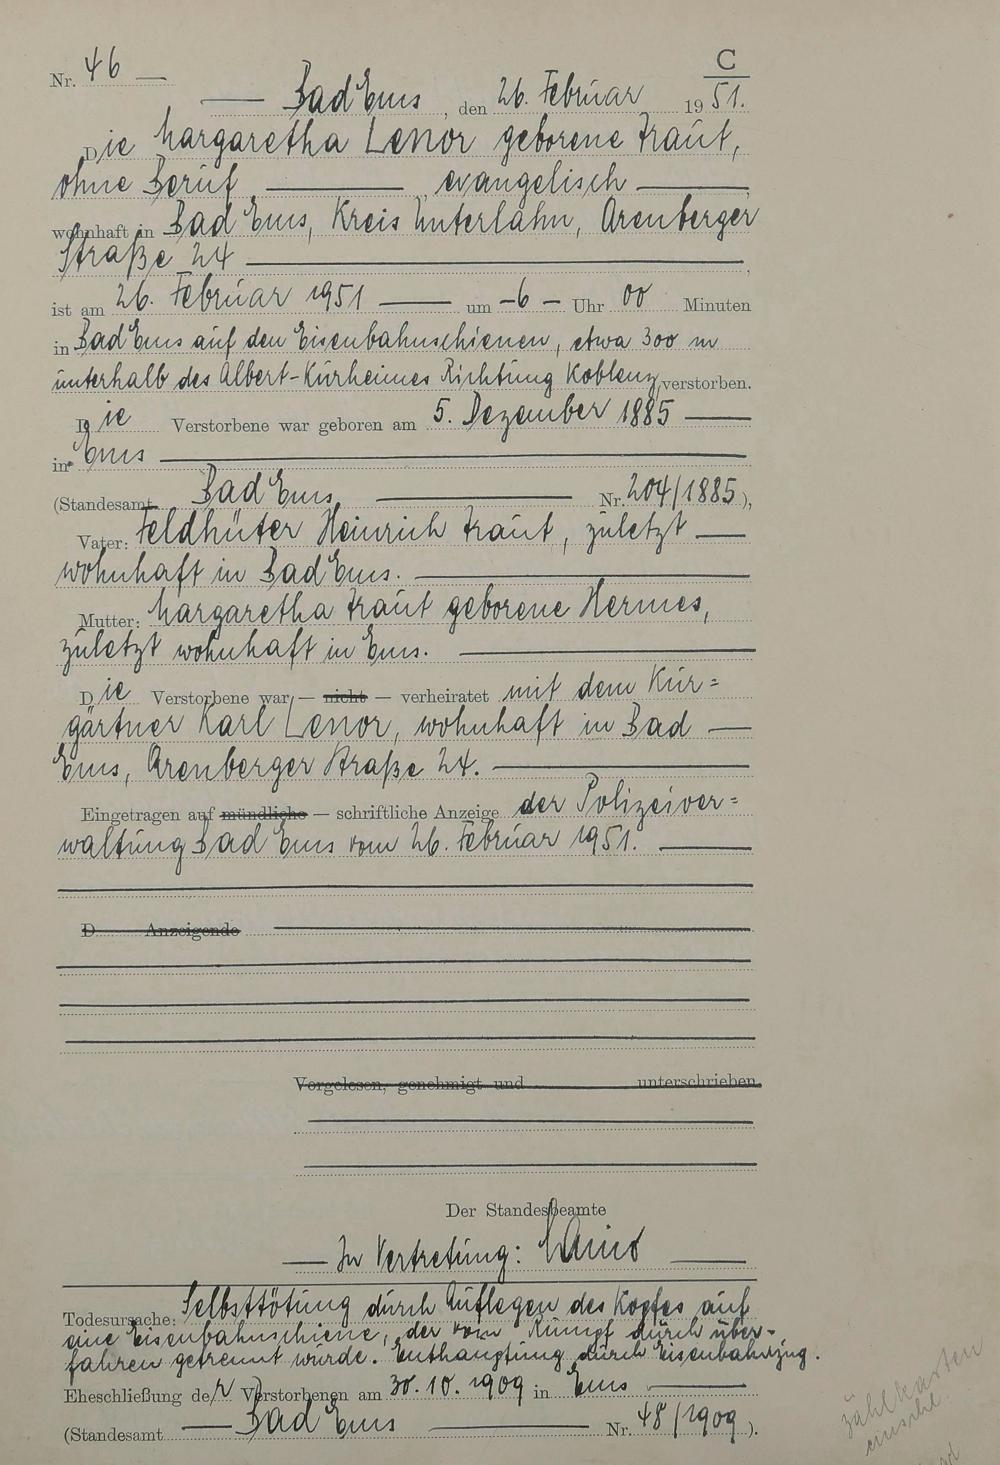 Nr. 46
C
Bad Ems, den 26. Februar 1951.
Die Margaretha Lenor geborene Traut,
ohne Beruf, evangelisch,
wohnhaft in Bad Ems, Kreis Unterlahn, Arenberger
Straße 24,
ist am 26. Februar 1951 um 6 Uhr 00 Minuten
in Bad Ems auf den Eisenbahnschienen, etwa 300 m
unterhalb des Albert-Kurheimes Richtung Koblenz, verstorben.
Die Verstorbene war geboren am 5. Dezember 1885
in Ems
(Standesamt Bad Ems Nr. 204/1885),
Vater: Feldhüter Heinrich Traut, zuletzt
wohnhaft in Bad Ems.
Mutter: Margaretha Traut geborene Hermes,
zuletzt wohnhaft in Ems.
Die Verstorbene war — nicht — verheiratet mit dem Kur=
gärtner Karl Lenor, wohnhaft in Bad
Ems, Arenberger Straße 24.
Eingetragen auf mündliche — schriftliche Anzeige der Polizeiver=
waltung Bad Ems vom 26. Februar 1951.
D Anzeigende
Vorgelesen, genehmigt und unterschrieben
Der Standesbeamte
In Vertretung:
Todesursache: Selbsttötung durch Auflegen des Kopfes auf
eine Eisenbahnschiene, der vom Rumpf durch über-
fahren getrennt wurde. Enthauptung durch Eisenbahnzug.
Eheschließung der Verstorbenen am 30.10.1909 in Ems
(Standesamt Bad Ems Nr. 48/1909).
Zählkarten